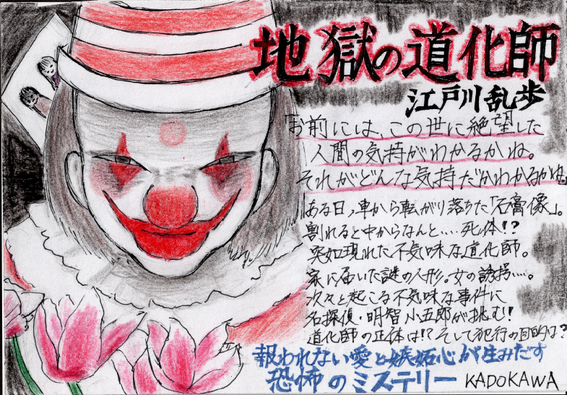 地獄の道化師
江戸川乱歩
「お前には、この世に絶望した
人間の気持がわかるかね。
それがどんな気持だかわかるかね」
ある日、車から転がり落ちた「石膏像」。
割れると中からなんと…死体!?
突如現れた不気味な道化師。
家に届いた謎の人形。女の誘拐…。
次々と起こる不気味な事件に
名探偵・明智小五郎が挑む!
道化師の正体は!?そして犯行の目的は?
報われない愛と嫉妬心が生みだす
恐怖のミステリー KADOKAWA